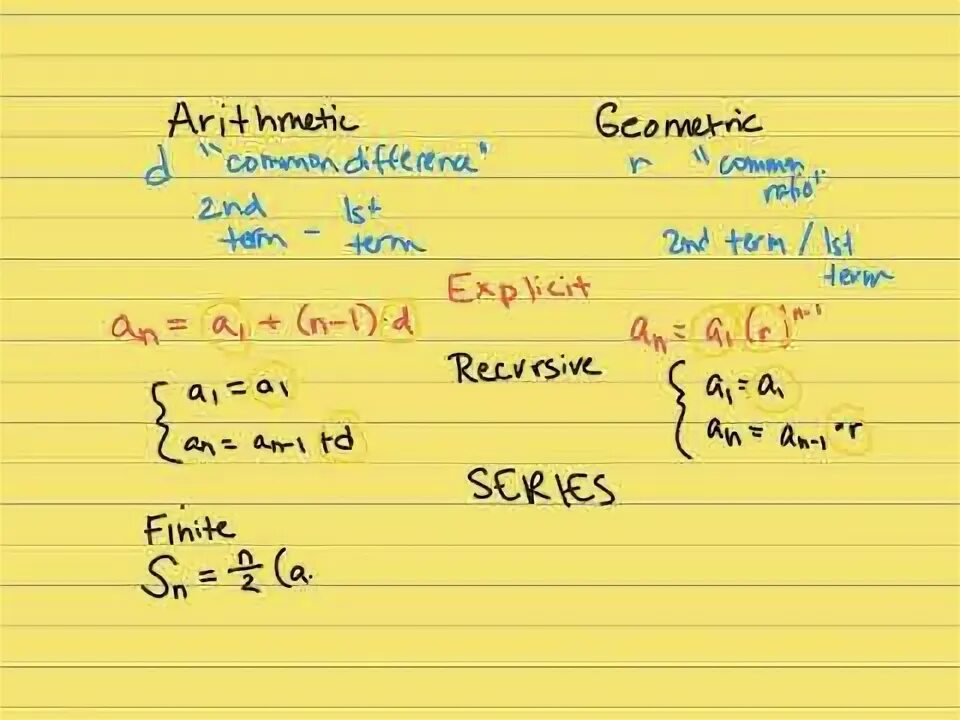 Arithmetic
d "common difference"
2nd term - 1st term
Geometric
r "common ratio"
2nd term / 1st term
Explicit
aₙ = a₁ + (n-1)·d
aₙ = a₁(r)ⁿ⁻¹
Recursive
a₁ = a₁
aₙ = aₙ₋₁ + d
a₁ = a₁
aₙ = aₙ₋₁ · r
SERIES
Finite
Sₙ = n/2 (a.